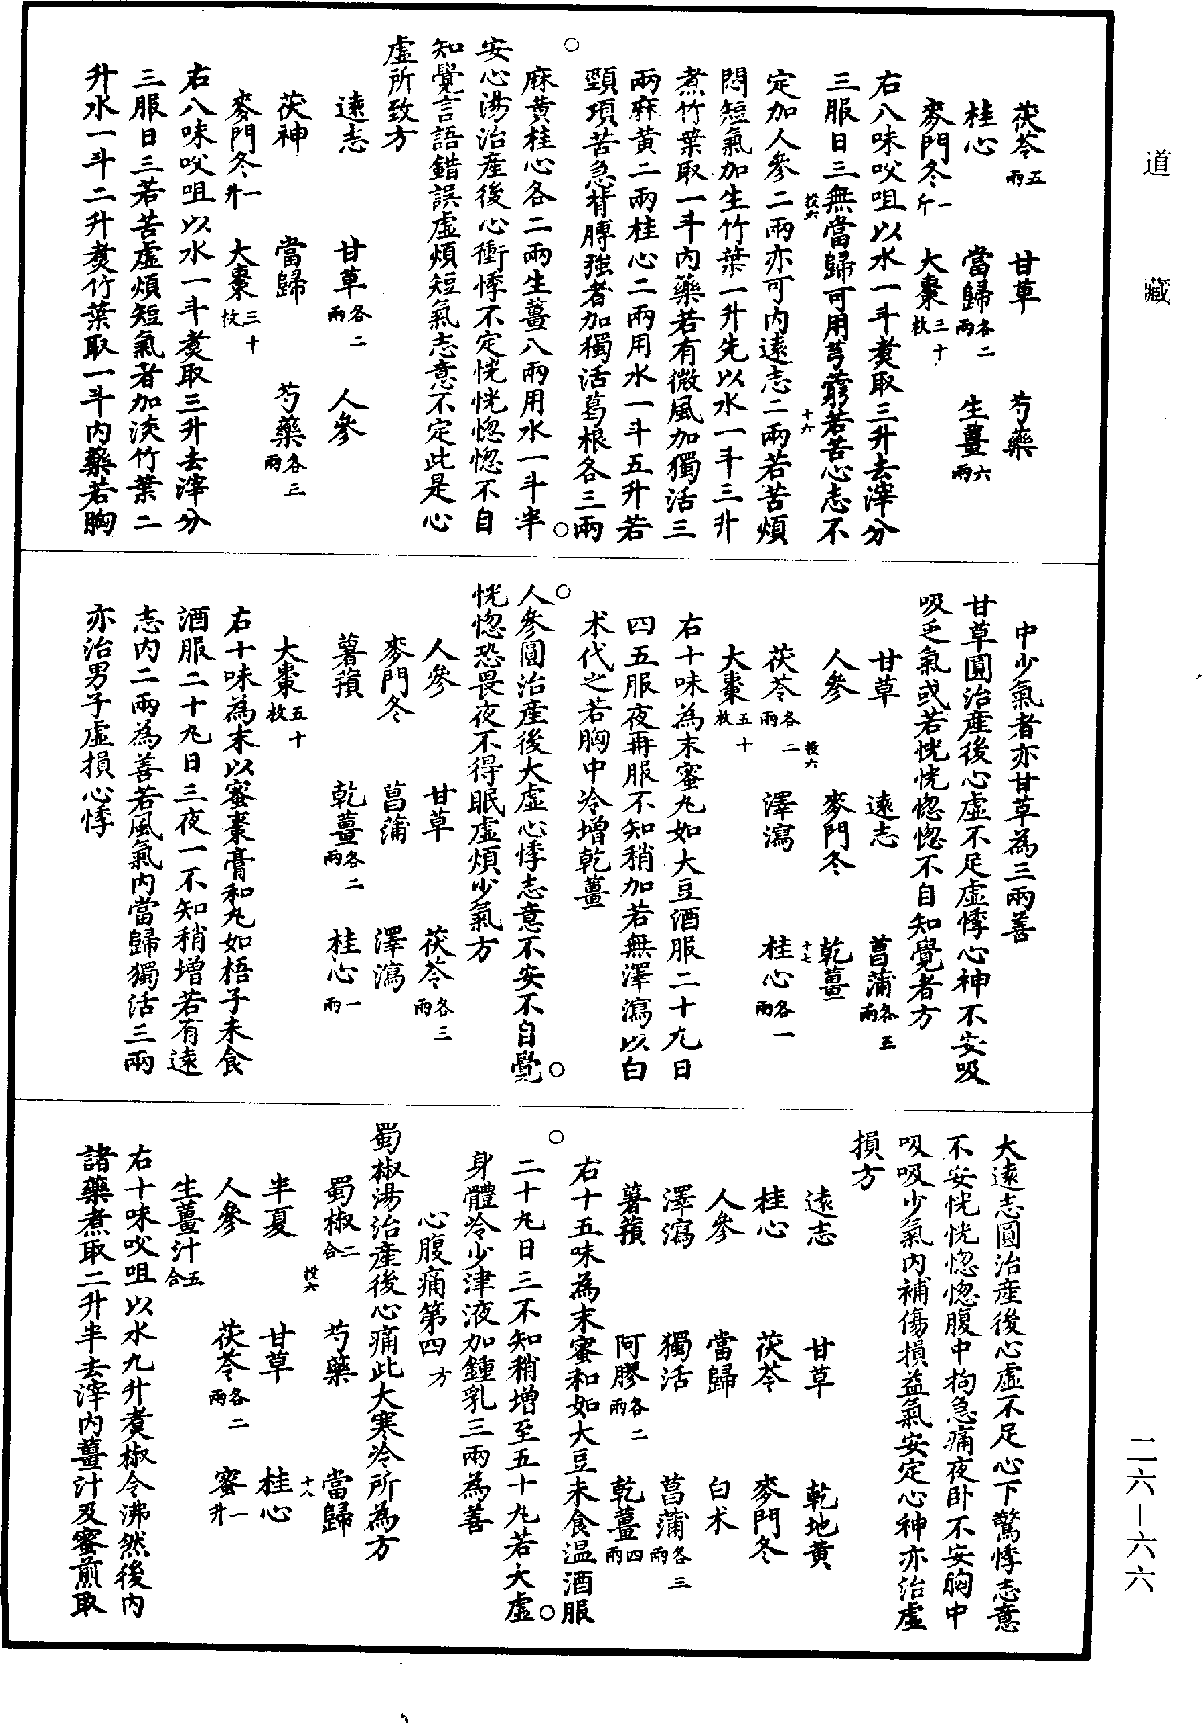 道藏
茯苓五兩 甘草 芍藥
桂心 當歸各二兩 生薑六兩
麥門冬一斤 大棗三十枚
右八味㕮咀以水一斗煑取三升去滓分
三服日三無當歸可用芎藭若苦心志不
投六 十六
定加人參二兩亦可內遠志二兩若苦煩
悶短氣加生竹葉一升先以水一斗三升
煮竹葉取一斗內藥若有微風加獨活三
兩麻黃二兩桂心二兩用水一斗五升若
頸項苦急背膊強者加獨活葛根各三兩
麻黃桂心各二兩生薑八兩用水一斗半
安心湯治產後心衝悸不定恍恍惚惚不自
知覺言語錯誤虛煩短氣志意不定此是心
虛所致方
遠志 甘草各二兩 人參
茯神 當歸 芍藥各三兩
麥門冬一升 大棗三十枚
右八味㕮咀以水一斗煑取三升去滓分
三服日三若苦虛煩短氣者加淡竹葉二
升水一斗二升煑竹葉取一斗內藥若胸
中少氣者亦甘草為三兩善
甘草圓治產後心虛不足虛悸心神不安吸
吸乏氣或若恍恍惚惚不自知覺者方
甘草 遠志 菖蒲各五兩
人參 麥門冬 乾薑
投六 十七
茯苓各二兩 澤瀉 桂心各一兩
大棗五十枚
右十味為末蜜丸如大豆酒服二十丸日
四五服夜再服不知稍加若無澤瀉以白
术代之若胸中冷增乾薑
人參圓治產後大虛心悸志意不安不自覺
恍惚恐畏夜不得眠虛煩少氣方
人參 甘草 茯苓各三兩
麥門冬 菖蒲 澤瀉
薯蕷 乾薑各二兩 桂心一兩
大棗五十枚
右十味為末以蜜棗膏和丸如梧子未食
酒服二十丸日三夜一不知稍增若有遠
志內二兩為善若風氣內當歸獨活三兩
亦治男子虛損心悸
大遠志圓治產後心虛不足心下驚悸志意
不安恍恍惚惚腹中拘急痛夜卧不安胸中
吸吸少氣內補傷損益氣安定心神亦治虛
損方
遠志 甘草 乾地黃
桂心 茯苓 麥門冬
人參 當歸 白术
澤瀉 獨活 菖蒲各三兩
薯蕷 阿膠各二兩 乾薑四兩
右十五味為末蜜和如大豆未食溫酒服
二十丸日三不知稍增至五十丸若大虛
身體冷少津液加鍾乳三兩為善
心腹痛第四方
蜀椒湯治產後心痛此大寒冷所為方
蜀椒二合 芍藥 當歸
投六 十八
半夏 甘草 桂心
人參 茯苓各二兩 蜜一升
生薑汁五合
右十味㕮咀以水九升煑椒令沸然後內
諸藥煮取二升半去滓內薑汁及蜜煎取
二六—六六